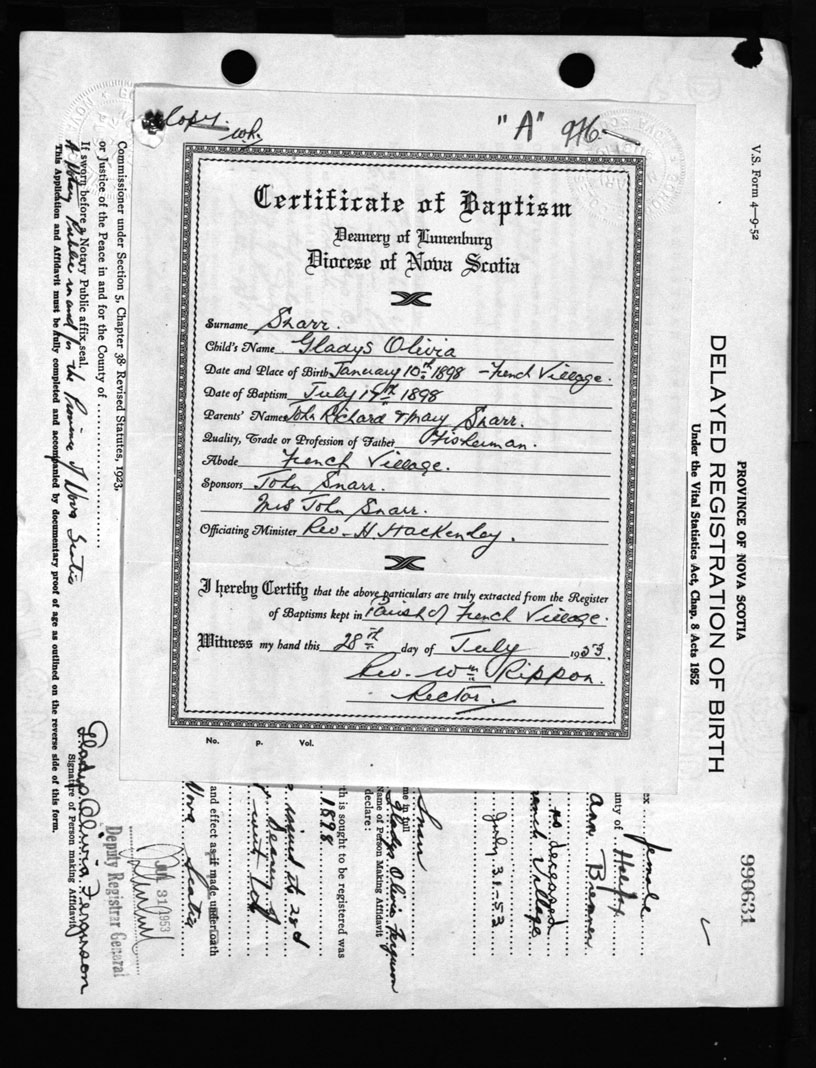 Copy.
wR.
"A" 976
Certificate of Baptism
Deanery of Lunenburg
Diocese of Nova Scotia
Surname Snarr.
Child's Name Gladys Olivia
Date and Place of Birth January 10th 1898 – French Village.
Date of Baptism July 17th 1898
Parents' Names John Richard & Mary Snarr.
Quality, Trade or Profession of Father Fisherman.
Abode French Village.
Sponsors John Snarr.
Mrs John Snarr.
Officiating Minister Rev. H. Hackenley.
I hereby Certify that the above particulars are truly extracted from the Register
of Baptisms kept in Parish of French Village.
Witness my hand this 28th day of July 1953.
Rev. Wm Rippon.
Rector.
No. p. Vol.
V.S. Form 4—9-52
PROVINCE OF NOVA SCOTIA
DELAYED REGISTRATION OF BIRTH
Under the Vital Statistics Act, Chap. 8 Acts 1952
990631
ex female
unty of Halifax
Ann
as deceased
ench Village
July 31-53
me in full
Gladys Olivia Ferguson
Name of Person Making Affidavit
declare:
th is sought to be registered was
1898
Deanery of
and effect as if made under oath
Nova Scotia
Jul 31 1953
Deputy Registrar General
Commissioner under Section 5, Chapter 38 Revised Statutes, 1923,
or Justice of the Peace in and for the County of
If sworn before a Notary Public affix seal.
A Notary Public in and for the Province of Nova Scotia
This Application and Affidavit must be fully completed and accompanied by documentary proof of age as outlined on the reverse side of this form.
Gladys Olivia Ferguson
Signature of Person making Affidavit